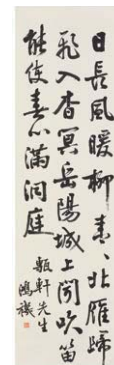 日長風暖柳青、北雁歸
飛入杳冥岳陽城上聞吹笛
能使春心滿洞庭
甌軒先生
鴻禨